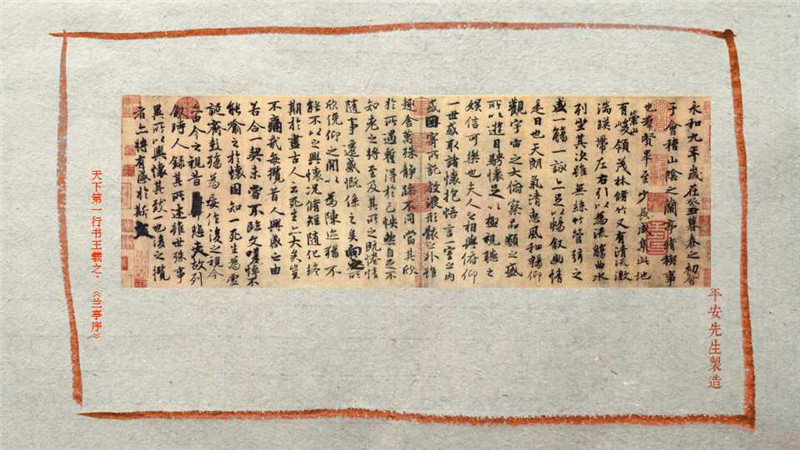 永和九年歲在癸丑暮春之初會
于會稽山陰之蘭亭脩稧事
也群賢畢至少長咸集此地
有崇山峻領茂林脩竹又有清流激
湍暎帶左右引以為流觴曲水
列坐其次雖無絲竹管弦之
盛一觴一詠亦足以暢敘幽情
是日也天朗氣清惠風和暢仰
觀宇宙之大俯察品類之盛
所以遊目騁懷足以極視聽之
娛信可樂也夫人之相與俯仰
一世或取諸懷抱悟言一室之內
或因寄所託放浪形骸之外雖
趣舍萬殊靜躁不同當其欣
於所遇暫得於己怏然自足不
知老之將至及其所之既惓情
隨事遷感慨係之矣向之所
欣俛仰之間以為陳迹猶不
能不以之興懷況脩短隨化終
期於盡古人云死生亦大矣豈
不痛哉每攬昔人興感之由
若合一契未嘗不臨文嗟悼不
能喻之於懷固知一死生為虛
誕齊彭殤為妄作後之視今
亦由今之視昔悲夫故列
敘時人錄其所述雖世殊事
異所以興懷其致一也後之攬
者亦將有感於斯文
平安先生製造
天下第一行书王羲之：《兰亭序》